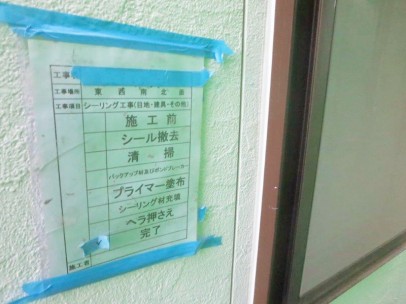 工事
工事場所 東 西 南 北 面
工事項目 シーリング工事(目地・建具・その他)
施工前
シール撤去
清 掃
バックアップ材及びボンドブレーカー
プライマー塗布
シーリング材充填
ヘラ押さえ
完了
施工者